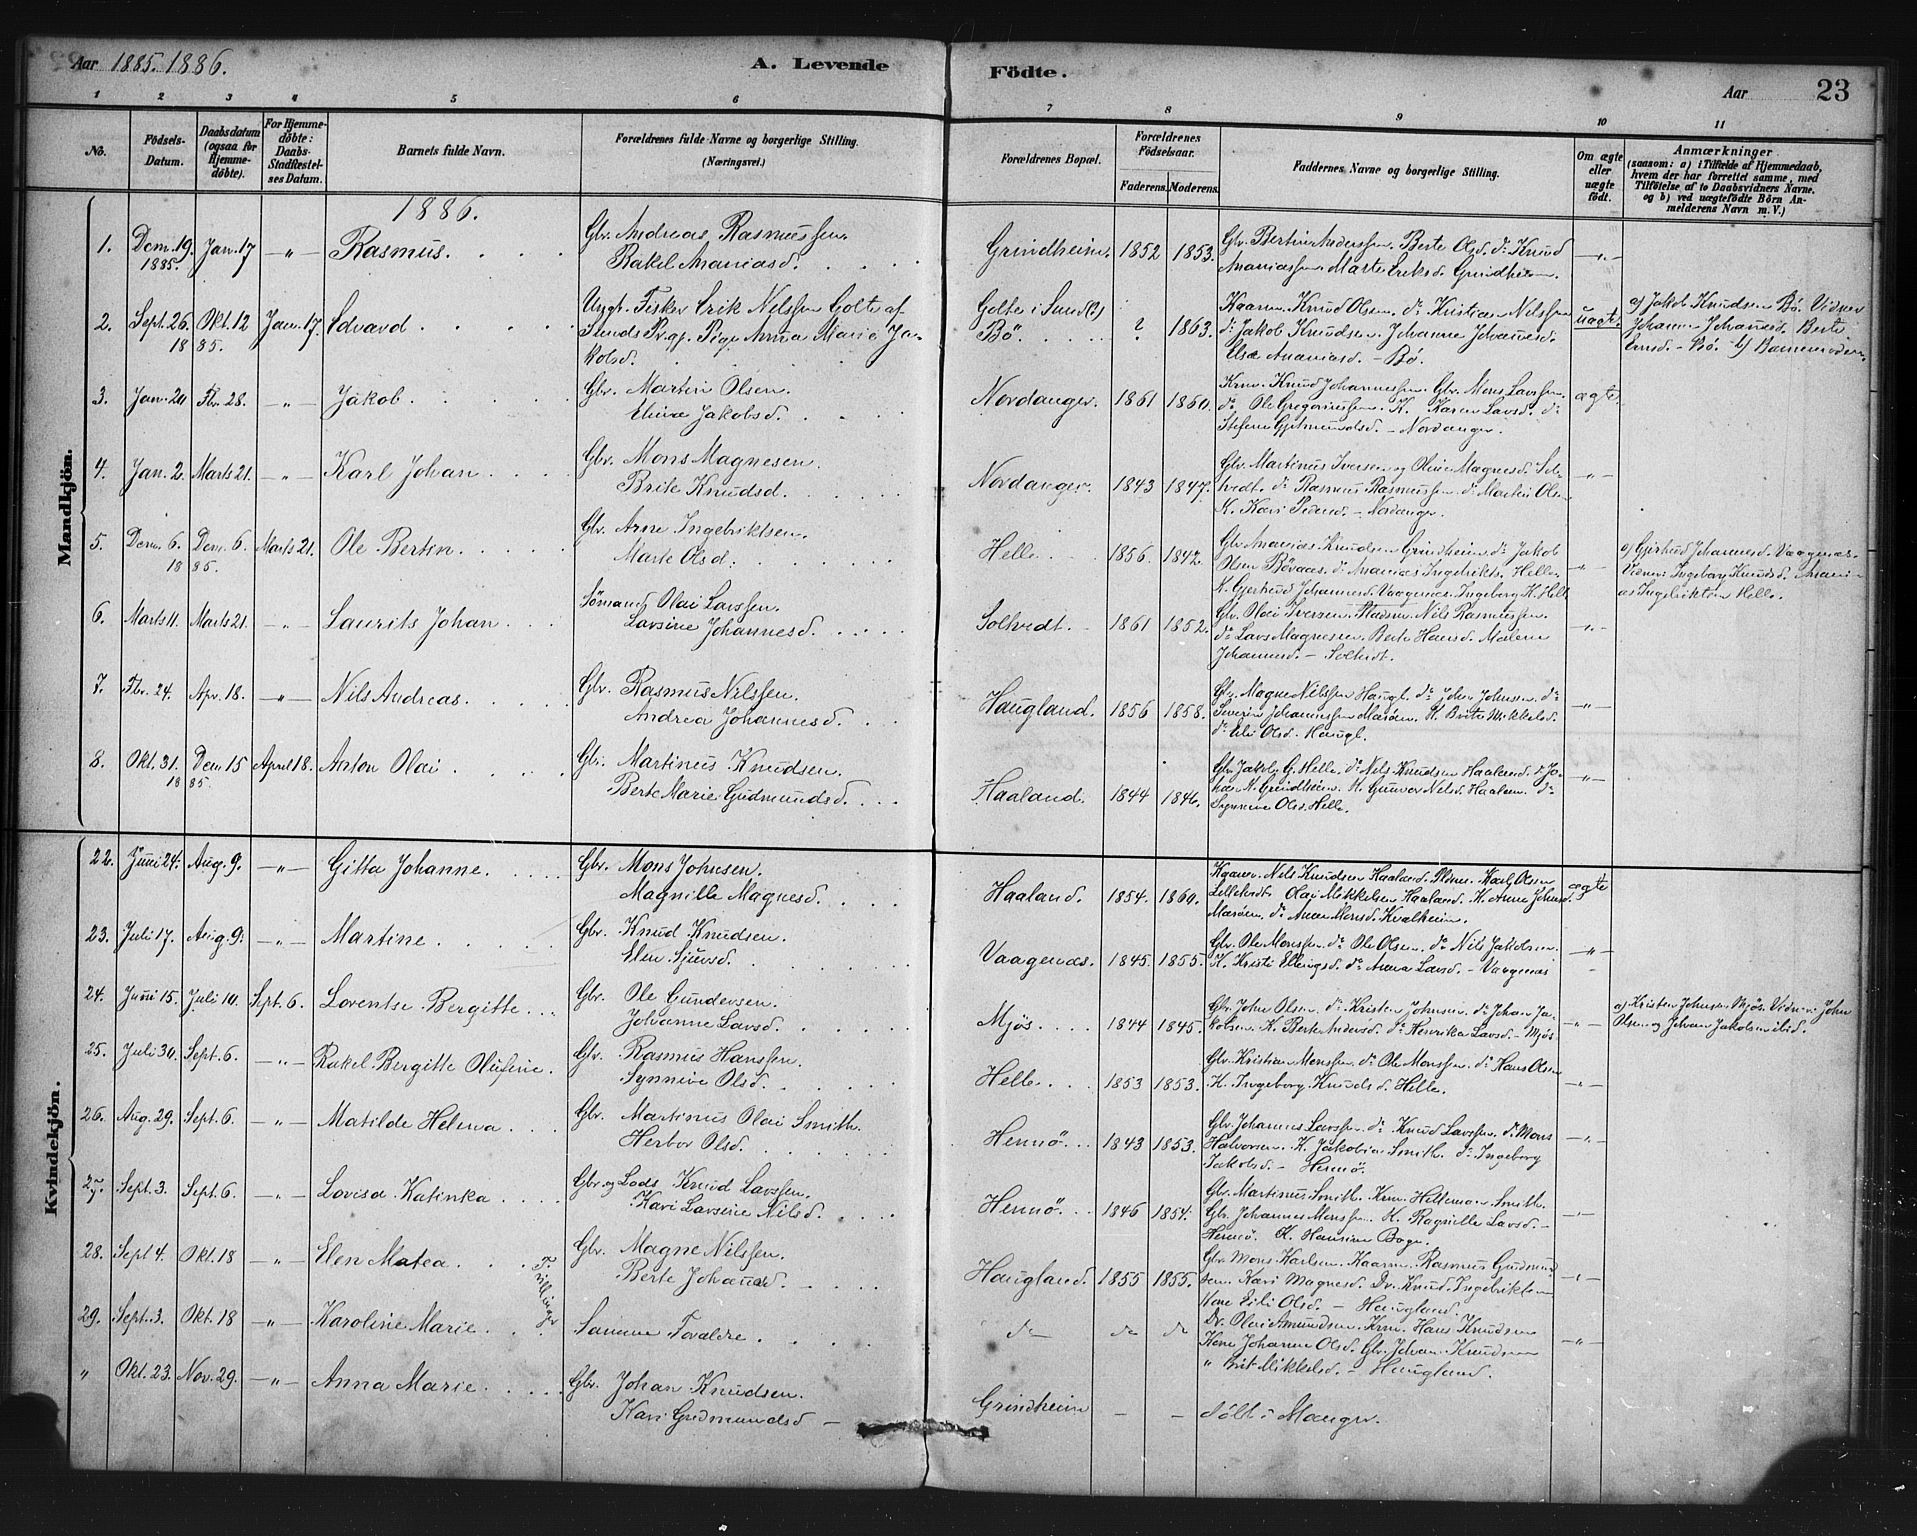 Aar 1885. 1886.
A. Levende
Födte.
Aar
23
1 2 3 4 5 6 7 8 9 10 11
No.
Födsels-Datum.
Daabsdatum (ogsaa for Hjemme-döbte).
For Hjemme-döbte: Daabs-Stadfestel-ses Datum.
Barnets fulde Navn.
Forældrenes fulde Navne og borgerlige Stilling. (Næringsvei.)
Forældrenes Bopæl.
Forældrenes Födselsaar.
Faderens. Moderens.
Faddernes Navne og borgerlige Stilling.
Om ægte eller uægte födt.
Anmærkninger
(saasom: a) i Tilfælde af Hjemmedaab, hvem der har forrettet samme, med Tilföielse af to Daabsvidners Navne, og b) ved uægtefödte Börn An-melderens Navn m. V.)
Mandkjön.
1886.
1. Dcm. 19. 1885. Jan. 17 — " — Rasmus. Gbr. Andreas Rasmussen. Rakel Ananiasd. Grindheim. 1852 1853. Gbr. Bertin Anderssen. Berte Olsd. do Knud Ananiassen. Marte Eriksd. Grindheim. — " —
2. Sept. 26. Okt. 12 1885. Jan. 17. Edvard. Ungk. Fisker Erik Nilssen Golten af Sunds Prgj. Pige Anna Marie Jakobsd. Golten i Sund(?) Bö. ? 1863. Kaarm. Knud Olsen. do Kristian Nilssen do Jakob Knudsen. Johanne Johannesd. Else Ananiasd. — Bö. uægte. a) Jakob Knudsen Bö. Vidner Johanne Johannesd. Berte — Bö. b) Barnemoderen
3. Jan. 20. Fbr. 28. — " — Jakob. Gbr. Martin Olsen. Eline Jakobsd. Nordanger. 1861 1860. Krm. Knud Johannessen. Gbr. Mons Larssen. do Ole Gregoriussen. K. Karen Larsd. do — Nordanger. ægte.
4. Jan. 2. Marts 21. — " — Karl Johan. Gbr. Mons Magnesen. Brite Knudsd. Nordanger. 1843 1847. Gbr. Martinus Iversen og Oline Magnesd. Soltvedt. do Rasmus Rasmussen. do Martin Olsen K. Kari Pedersd. — Nordanger. — " —
5. Dcm. 6. Dcm. 6. 1885. Marts 21. Ole Bertin. Gbr. Arne Ingebriktsen. Marte Olsd. Helle. 1856. 1842. Gbr. Ananias Knudsen Grindheim. do Jakob Olsen Bövaag. do Ananias Ingebrikts. Helle. K. Gjertrud Johannesd. Vaagenæs. Ingeborg K. Helle — " — a) Gjertrud Johannesd. Vaagenæs. Vidner: Ingeborg Knudsd. Ananias Ingebriktsen Helle.
6. Marts 11. Marts 21. — " — Laurits Johan. Sömand Olai Larssen. Larsine Johannesd. Soltvedt. 1861 1852. Gbr. Olai Iversen. Nils Rasmussen. do Lars Magnessen. Berte Hansd. Malene Johannesd. — Soltvedt. — " —
7. Fbr. 24. Apr. 18. — " — Nils Andreas. Gbr. Rasmus Nilssen. Andrea Johannesd. Haugland. 1856 1858. Gbr. Magne Nilssen Haugl. do John Johnsen. do Severin Johannessen Marøen. K. Brite Mikkelsd. do Eli Olsd. Haugl. — " —
8. Okt. 31. Dcm. 15 1885. April 18. Anton Olai. Gbr. Martinus Knudsen. Berte Marie Gudmundsd. Haaland. 1844 1846. Gbr. Jakob G. Helle. do Nils Knudsen Haaland. do Johan K. Grindheim. K. Gunvor Nilsd. Haaland. do Synneve Olsd. Helle. — " —
Kvindekjön.
22. Juni 24. Aug. 9. — " — Gitta Johanne. Gbr. Mons Johnsen. Magnille Magnesd. Haaland. 1854. 1860. Kaarm. Nils Knudsen Haaland. Karl Olsen Olai Mikkelsen Haaland. K. Anne Johnsd. Marøen. do Anne Monsd. Kvalheim. ægte
23. Juli 17. Aug. 9. — " — Martine. Gbr. Knud Knudsen. Elen Sjursd. Vaagenæs. 1845. 1855. Gbr. Ole Monssen. do Ole Olsen. do Nils Jakobsen. K. Kristi Ellingsd. do Anna Larsd. — Vaagenæs — " —
24. Juni 15. Juli 10. Sept. 6. Lorentse Bergitte. Gbr. Ole Gundersen. Johanne Larsd. Mjös. 1844 1845. Gbr. John Olsen. do Kristen Johnsen. do Johan Jakobsen. K. Berte Andersd. do Henrika Larsd. — Mjös — " — a) Kristen Johnsen Mjös. Vidner: John Olsen og Johan Jakobsen ibid.
25. Juli 30. Sept. 6. — " — Rakel Bergitte Oluffine. Gbr. Rasmus Hanssen. Synneve Olsd. Helle. 1853 1853. Gbr. Kristian Monssen. do Ole Monssen. do Hans Olsen K. Ingeborg Knudsd. Helle. — " —
26. Aug. 29. Sept. 6. — " — Matilde Helena. Gbr. Martinus Olai Smith. Herbor Olsd. Hennö. 1843 1853. Gbr. Johannes Larssen. do Knud Larssen. do Mons Halvorsen. K. Jakobine Smith. do Ingeborg Jakobsd. — Hennö. — " —
27. Sept. 3. Sept. 6. — " — Lovisa Katinka. Gbr. og Lods Knud Larssen. Kari Larsine Nilsd. Hennö. 1846 1854. Gbr. Martinus Smith. Krm. Smith. Gbr. Johannes Monssen. K. Ragnille Larsd. — Hennö. K. Hansine — " —
28. Sept 4. Okt. 18 — " — Elen Matea. Tvillinger Gbr. Magne Nilssen. Berte Johannesd. Haugland. 1855 1855. Gbr. Mons Karlsen. Kaarm. Rasmus Gudmundsen. Kari Magnesd. Dr. Knud Ingebriktsen Kone Eili Olsd. — Haugland. — " —
29. Sept. 3. Okt. 18 — " — Karoline Marie. Samme Forældre. do do do Dr. Olai Amundsen. Krm. Hans Knudsen Kone Johanne Olsd. Gbr. Johan Knudsen " Brit Mikkelsd. — Haugland. — " —
" Okt. 23. Nov. 29. — " — Anna Marie. Gbr. Johan Knudsen. Kari Gudmundsd — Grindheim — — döbt i Manger.